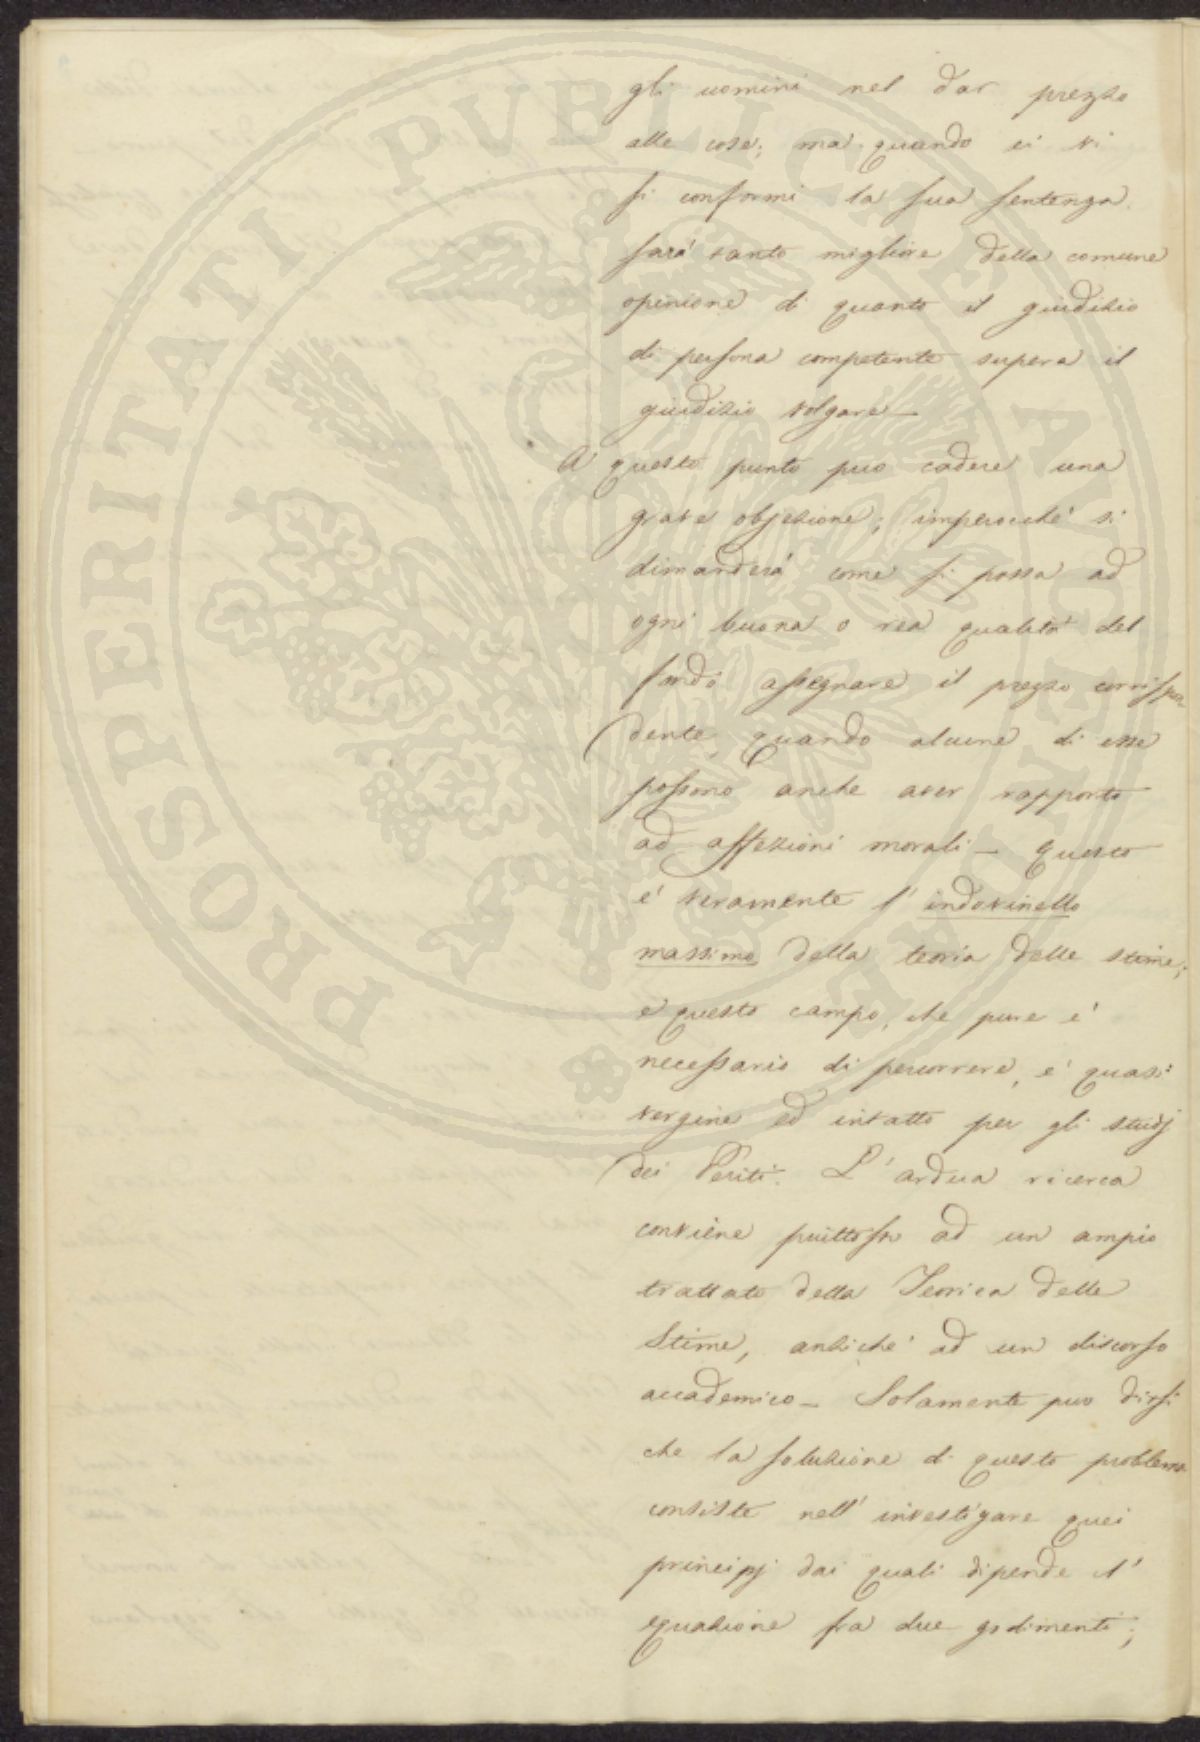 gli uomini nel dar prezzo
alle cose; ma quando ei vi
si conformi la sua sentenza
sarà tanto migliore della comune
opinione di quanto il giudizio
di persona competente supera il
giudizio volgare—
A questo punto può cadere una
grave objezione; imperocché si
dimanderà come si possa ad
ogni buona o rea qualità del
fondo assegnare il prezzo corrispon
dente, quando alcune di esse
possono anche aver rapporto
ad affezioni morali — Questo
é veramente l' indovinello
massimo della teoria delle stime;
e questo campo, che pure é
necessario di percorrere, é quasi
vergine ed intatto per gli studj
dei Periti. L' ardua ricerca
conviene piuttosto ad un ampio
trattato della Teorica delle
Stime, anziché ad un discorso
accademico — Solamente può dirsi
che la soluzione di questo problema
consiste nell' investigare quei
principj dai quali dipende l'
equazione fra due godimenti;
PROSPERITATI PVBLICAE AVGENDAE